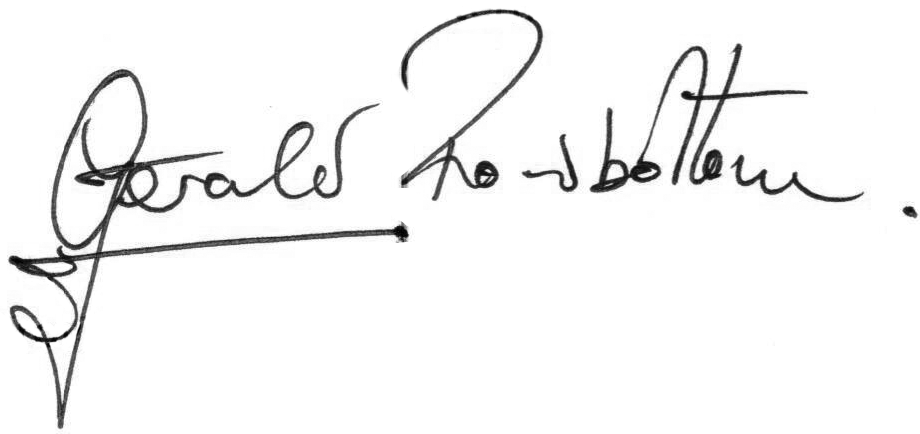 Gerald Rowbottom.